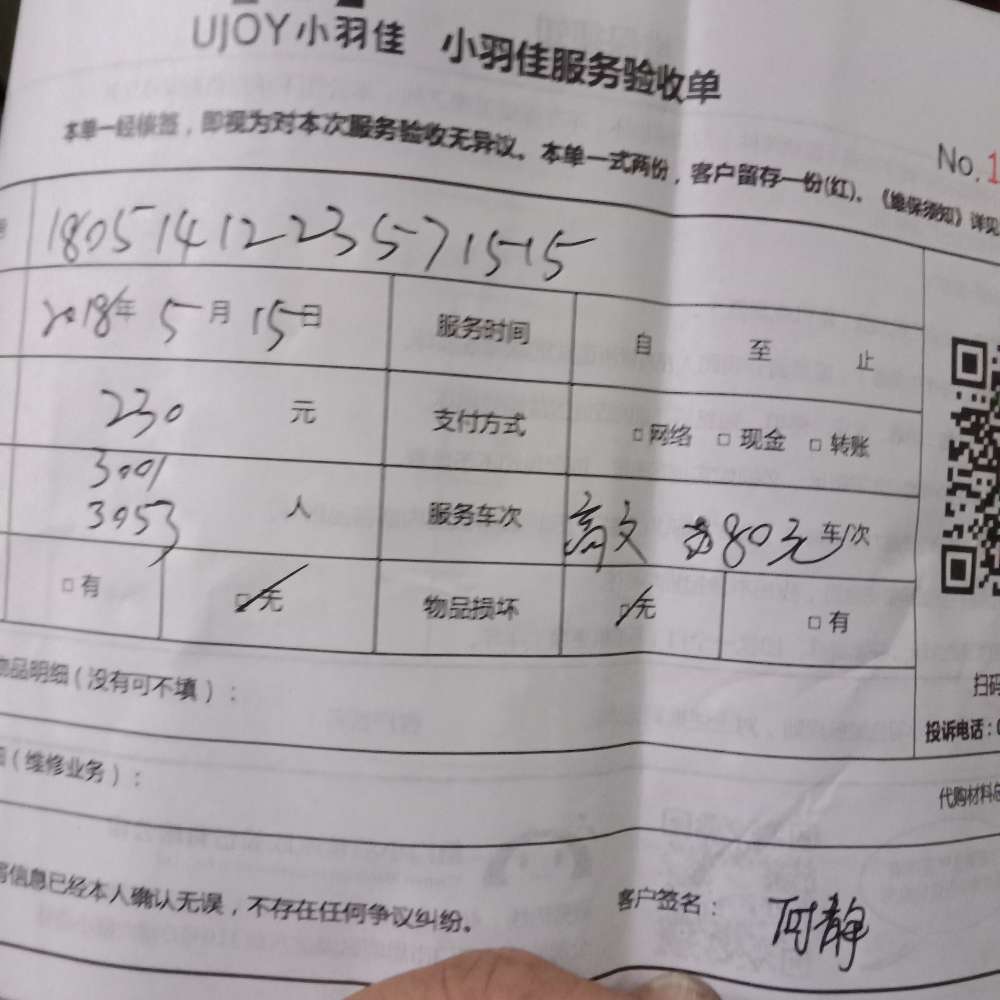 UJOY小羽佳 小羽佳服务验收单
本单一经核签，即视为对本次服务验收无异议。本单一式两份，客户留存一份(红)。《维保须知》详见
No.1
1805141223571515
2018年 5月 15日 服务时间 自 至 止
230 元 支付方式 □网络 □现金 □转账
3001
3053 人 服务车次 80元 车/次
□有 □无 物品损坏 □无 □有
物品明细（没有可不填）：
扫码
投诉电话：0
（维修业务）：
代购材料总
信息已经本人确认无误，不存在任何争议纠纷。
客户签名： 何静